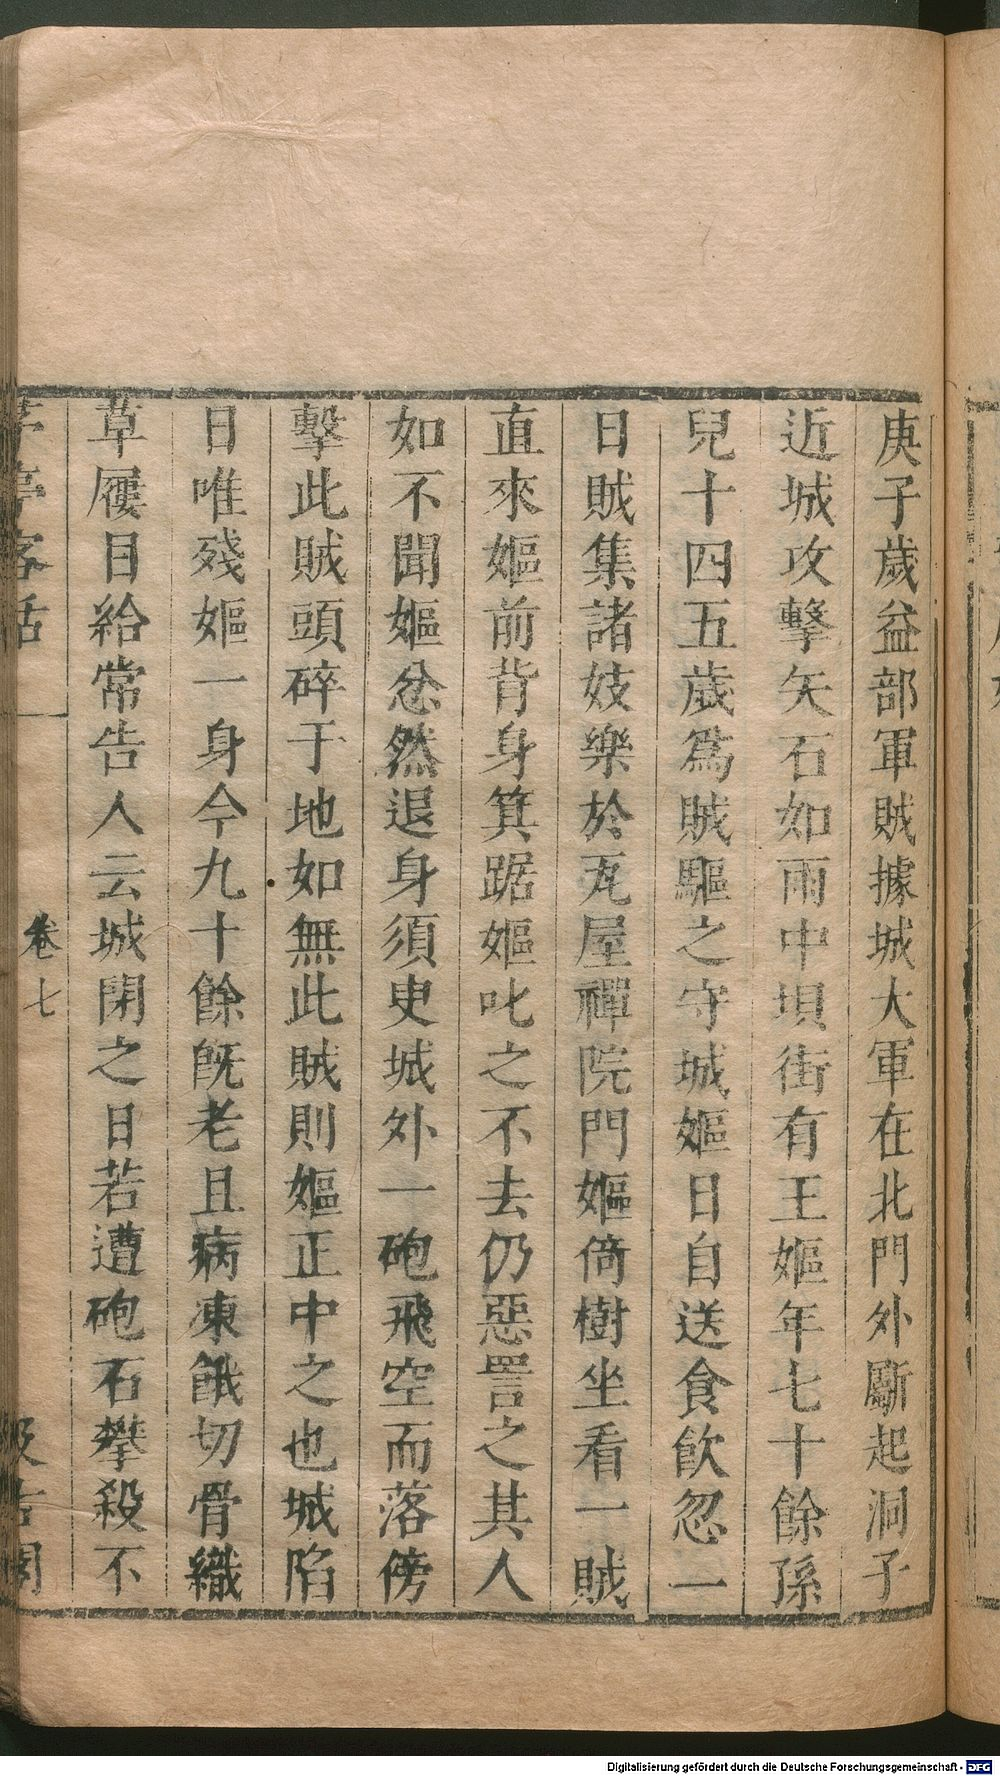 庚子歲益部軍賊據城大軍在北門外斸起洞子
近城攻擊矢石如雨中垻街有王嫗年七十餘孫
兒十四五歲爲賊驅之守城嫗日自送食飲忽一
日賊集諸妓樂於瓦屋禪院門嫗倚樹坐看一賊
直來嫗前背身箕踞嫗叱之不去仍惡詈之其人
如不聞嫗忿然退身須臾城外一砲飛空而落傍
擊此賊頭碎于地如無此賊則嫗正中之也城陷
日唯殘嫗一身今九十餘旣老且病凍餓切骨織
草屨自給常告人云城閉之日若遭砲石攀殺不
茅亭客話
卷七
汲古閣
Digitalisierung gefördert durch die Deutsche Forschungsgemeinschaft - DFG